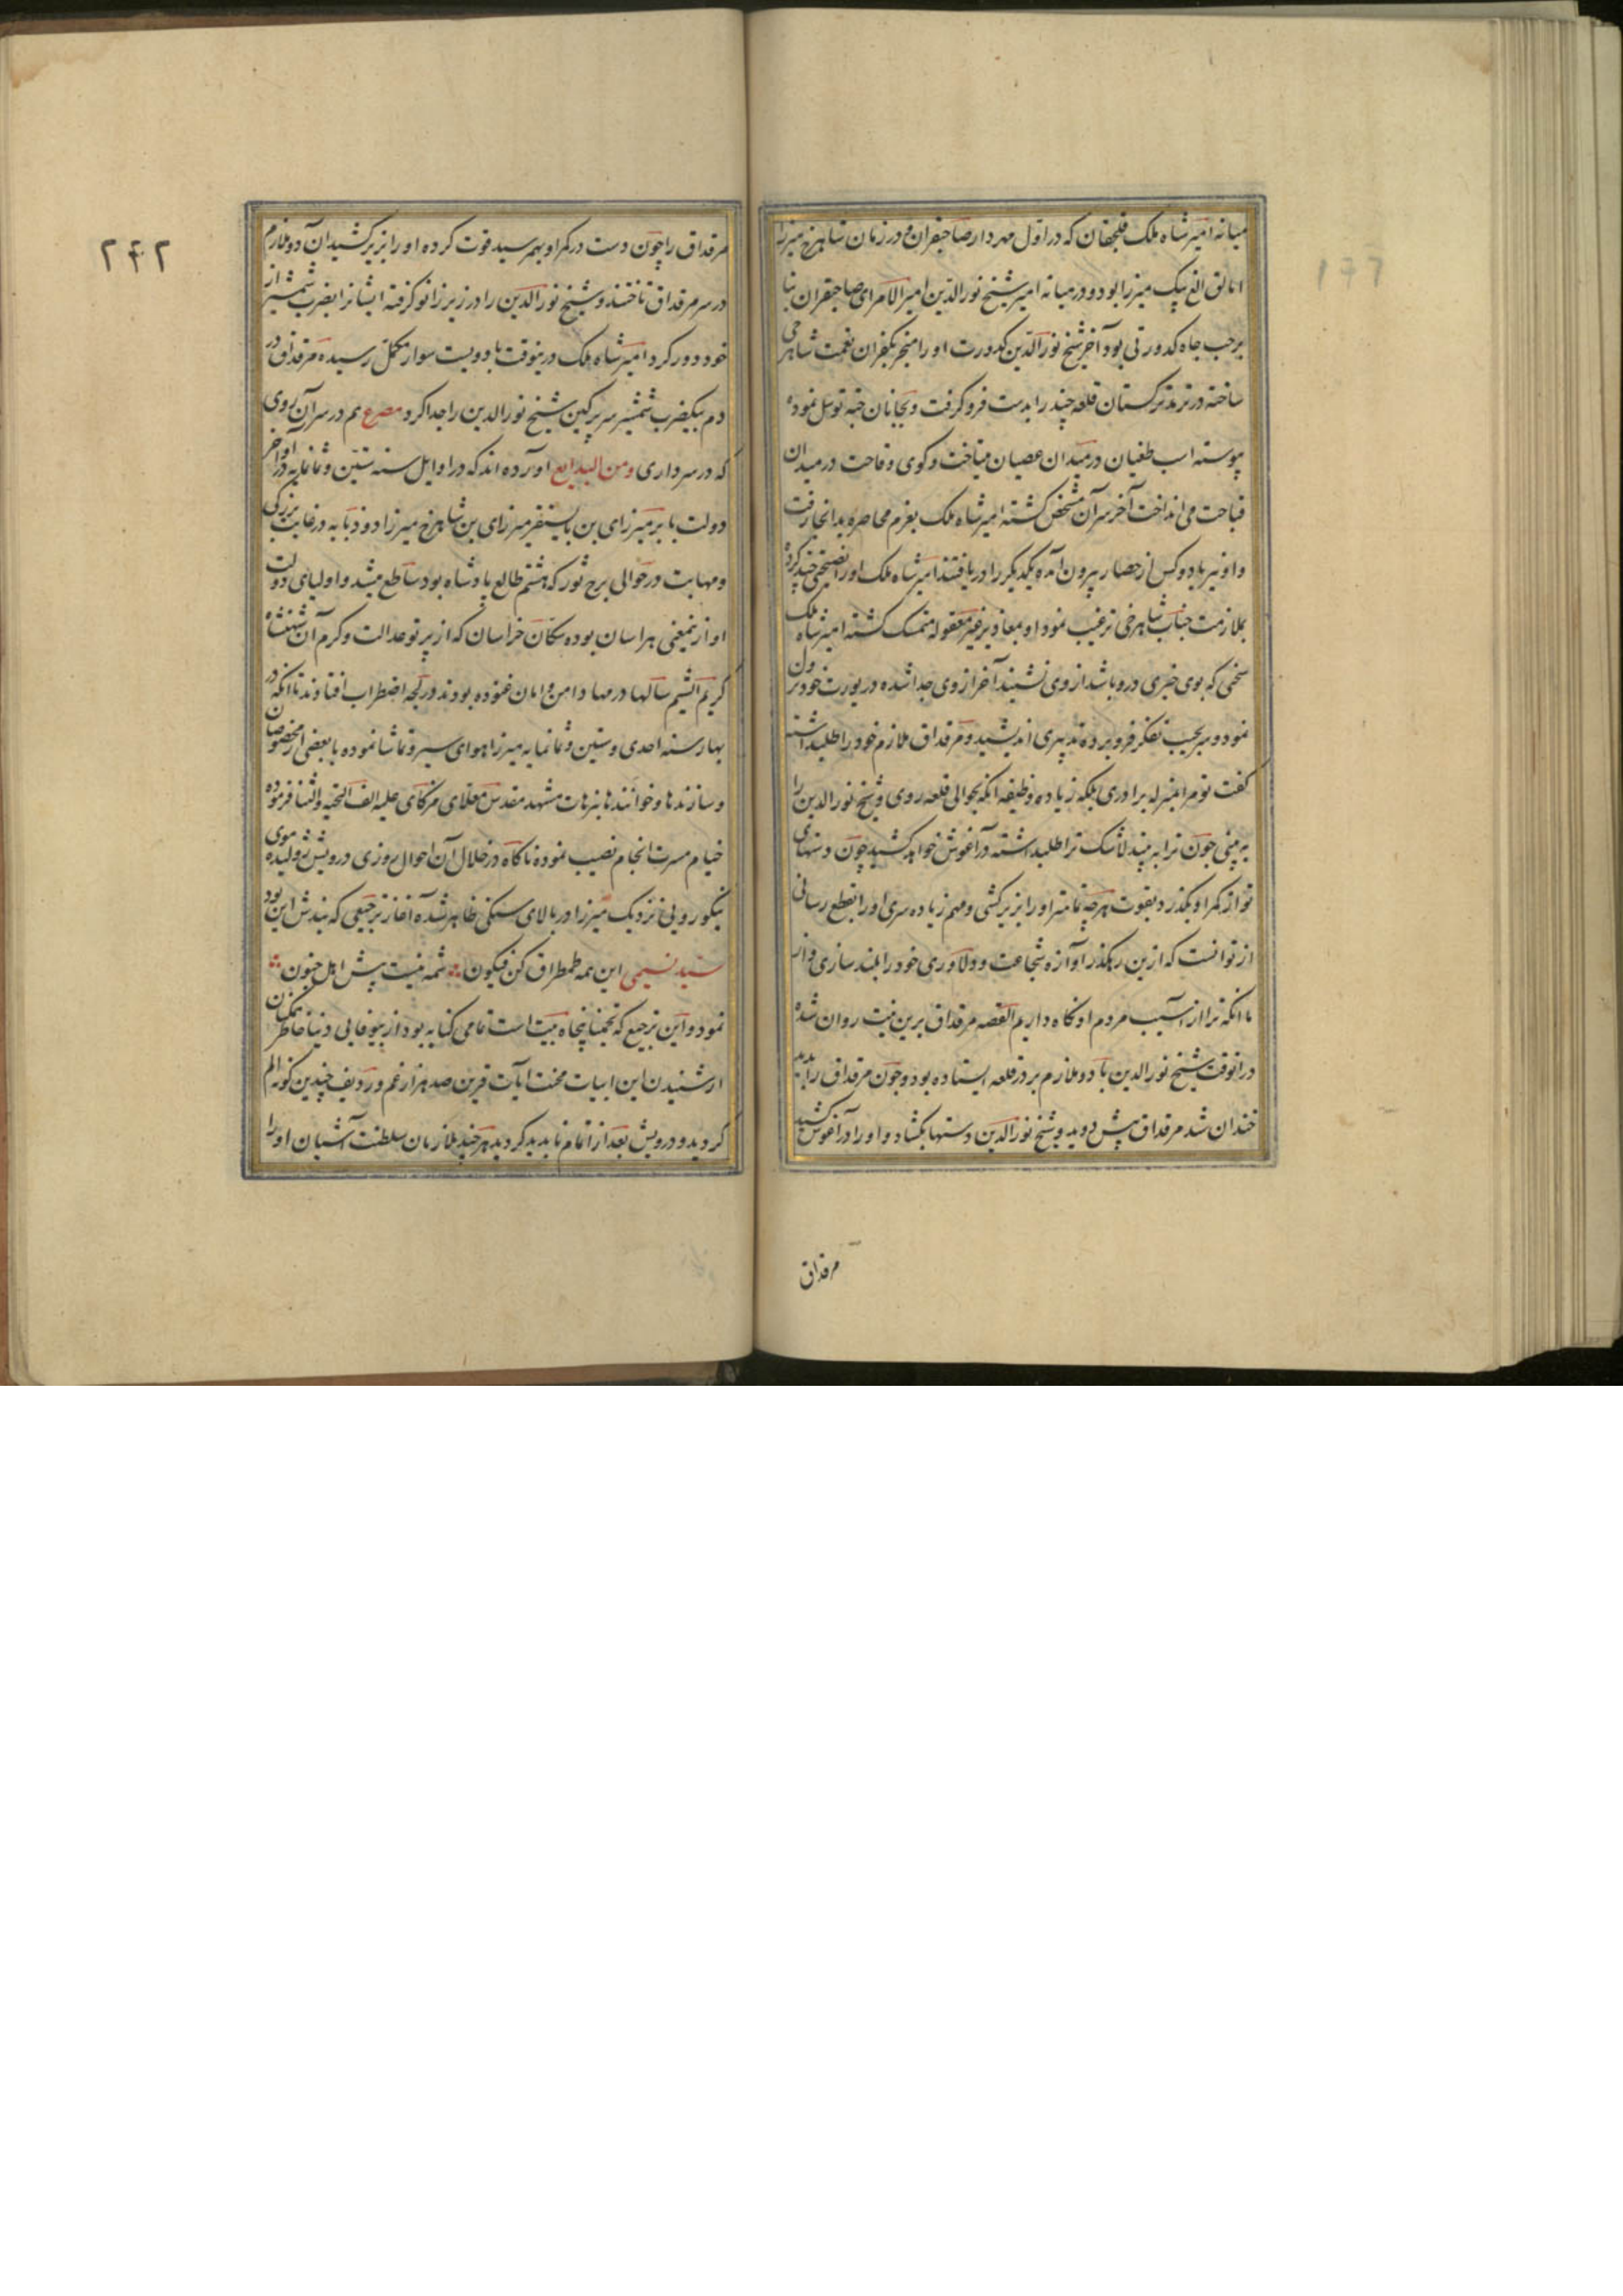 میانه امیر شاه ملک قلجقان که در اول مهردار صاحبقران و در زمان شاهرخ میرزا
اتالق الغ بیک میرزا بود و در میانه امیر شیخ نور الدین امیر الامرای صاحبقران بنا
بر حب جاه کدورتی بود آخر شیخ نور الدین کدورت او را منجر بکفران نعمت شاهرخی
ساخته در ترمد ترکستان قلعه چند را بدست فرو گرفت و بخانان جته توسل نموده
پیوسته اسب طغیان در میدان عصیان میتاخت و کوی وقاحت در میدان
قباحت می انداخت آخر سر آن مشخص کشته امیر شاه ملک بعزم محاصره بدانجا رفت
و او نیز با دو کس از حصار بیرون آمده یکدیگر را دریافتند امیر شاه ملک او را نصیحتی چند کرده
بملازمت جناب شاهرخی ترغیب نمود او بمعاذیر غیر معقوله متمسک کشته امیر شاه ملک
سخنی که بوی خیری درو باشد از وی نشنید آخر از وی جدا شده در یورت خود نزول
نمود و سر بجیب تفکر فرو برده تدبیری اندیشید و مرقداق ملازم خود را طلبداشته
کفت تو مرا بمنزله برادری بلکه زیاده وظیفه آنکه بحوالی قلعه روی و شیخ نور الدین را
به بینی چون ترا به بیند لاشک ترا طلبداشته در آغوش خواهد کشید چون دستهای
تو از کمر او بگذرد بقوت هرچه تمامتر او را بزیر کشی و مهم زیاده سری او را بقطع رسانی
از تو آنست که ازین رهکذر آوازه شجاعت و دلاوری خود را بلند سازی و از
ما آنکه ترا از آسیب مردم او نکاه داریم القصه مرقداق برین نیت روان شد
در آنوقت شیخ نور الدین با دو ملازم بر در قلعه ایستاده بود و چون مرقداق را بدید
خندان شد مرقداق پیش دوید و شیخ نور الدین دستها بکشاد و او را در آغوش کشید
مرقداق
۲۴۲
مرقداق را چون دست در کمر او بهم رسید قوت کرده او را بزیر کشید آن دو ملازم
در سر مرقداق تاختند و شیخ نور الدین را در زیر زانو کرفته ایشانرا بضرب شمشیر از
خود دور کرد امیر شاه ملک درینوقت با دویست سوار مکمل رسیده مرقداق در
دم بیکضرب شمشیر سر پرکین شیخ نور الدین را جدا کرد مصرع هم در سر آن روی
که در سر داری ومن البدایع آورده اند که در اوایل سنه ستین و ثمانمایه در اواخر
دولت بابر میرزای بن بایسنقر میرزای بن شاهرخ میرزا دو ذنابه در غایت بزرگی
و مهابت در حوالی برج ثور که هشتم طالع پادشاه بود ساطع میشد و اولیای دولت
او ازینمعنی هراسان بوده سکان خراسان که از پرتو عدالت و کرم آن شهنشاه
کریم الشیم سالها در مهاد امن و امان غنوده بودند در لجه اضطراب افتادند تا آنکه در
بهار سنه احدی و ستین و ثمانمایه میرزا هوای سیر و تماشا نموده با بعضی از مخصوصان
و سازندها و خوانندها بنزهات مشهد مقدس معلای مزکای علیه الف التحیه والثنا فرموده
خیام مسرت انجام نصب نموده ناکاه در خلال آن احوال روزی درویش ژولیده موی
نیکو رویی نزدیک میرزا در بالای سنکی ظاهر شده آغاز ترجیعی که بندش این بود
سید نسیمی این همه طمطراق کن فیکون شمه نیست پیش اهل جنون
نمود و این ترجیع که تخمینا پنجاه بیت است تمامی کنایه بود از بیوفایی دنیا خاطر همکنان
از شنیدن این ابیات محنت آیات قرین صد هزار غم و ردیف چندین کونه الم
کردید و درویش بعد از اتمام ناپدید کردید هر چند ملازمان سلطنت آشیان او را